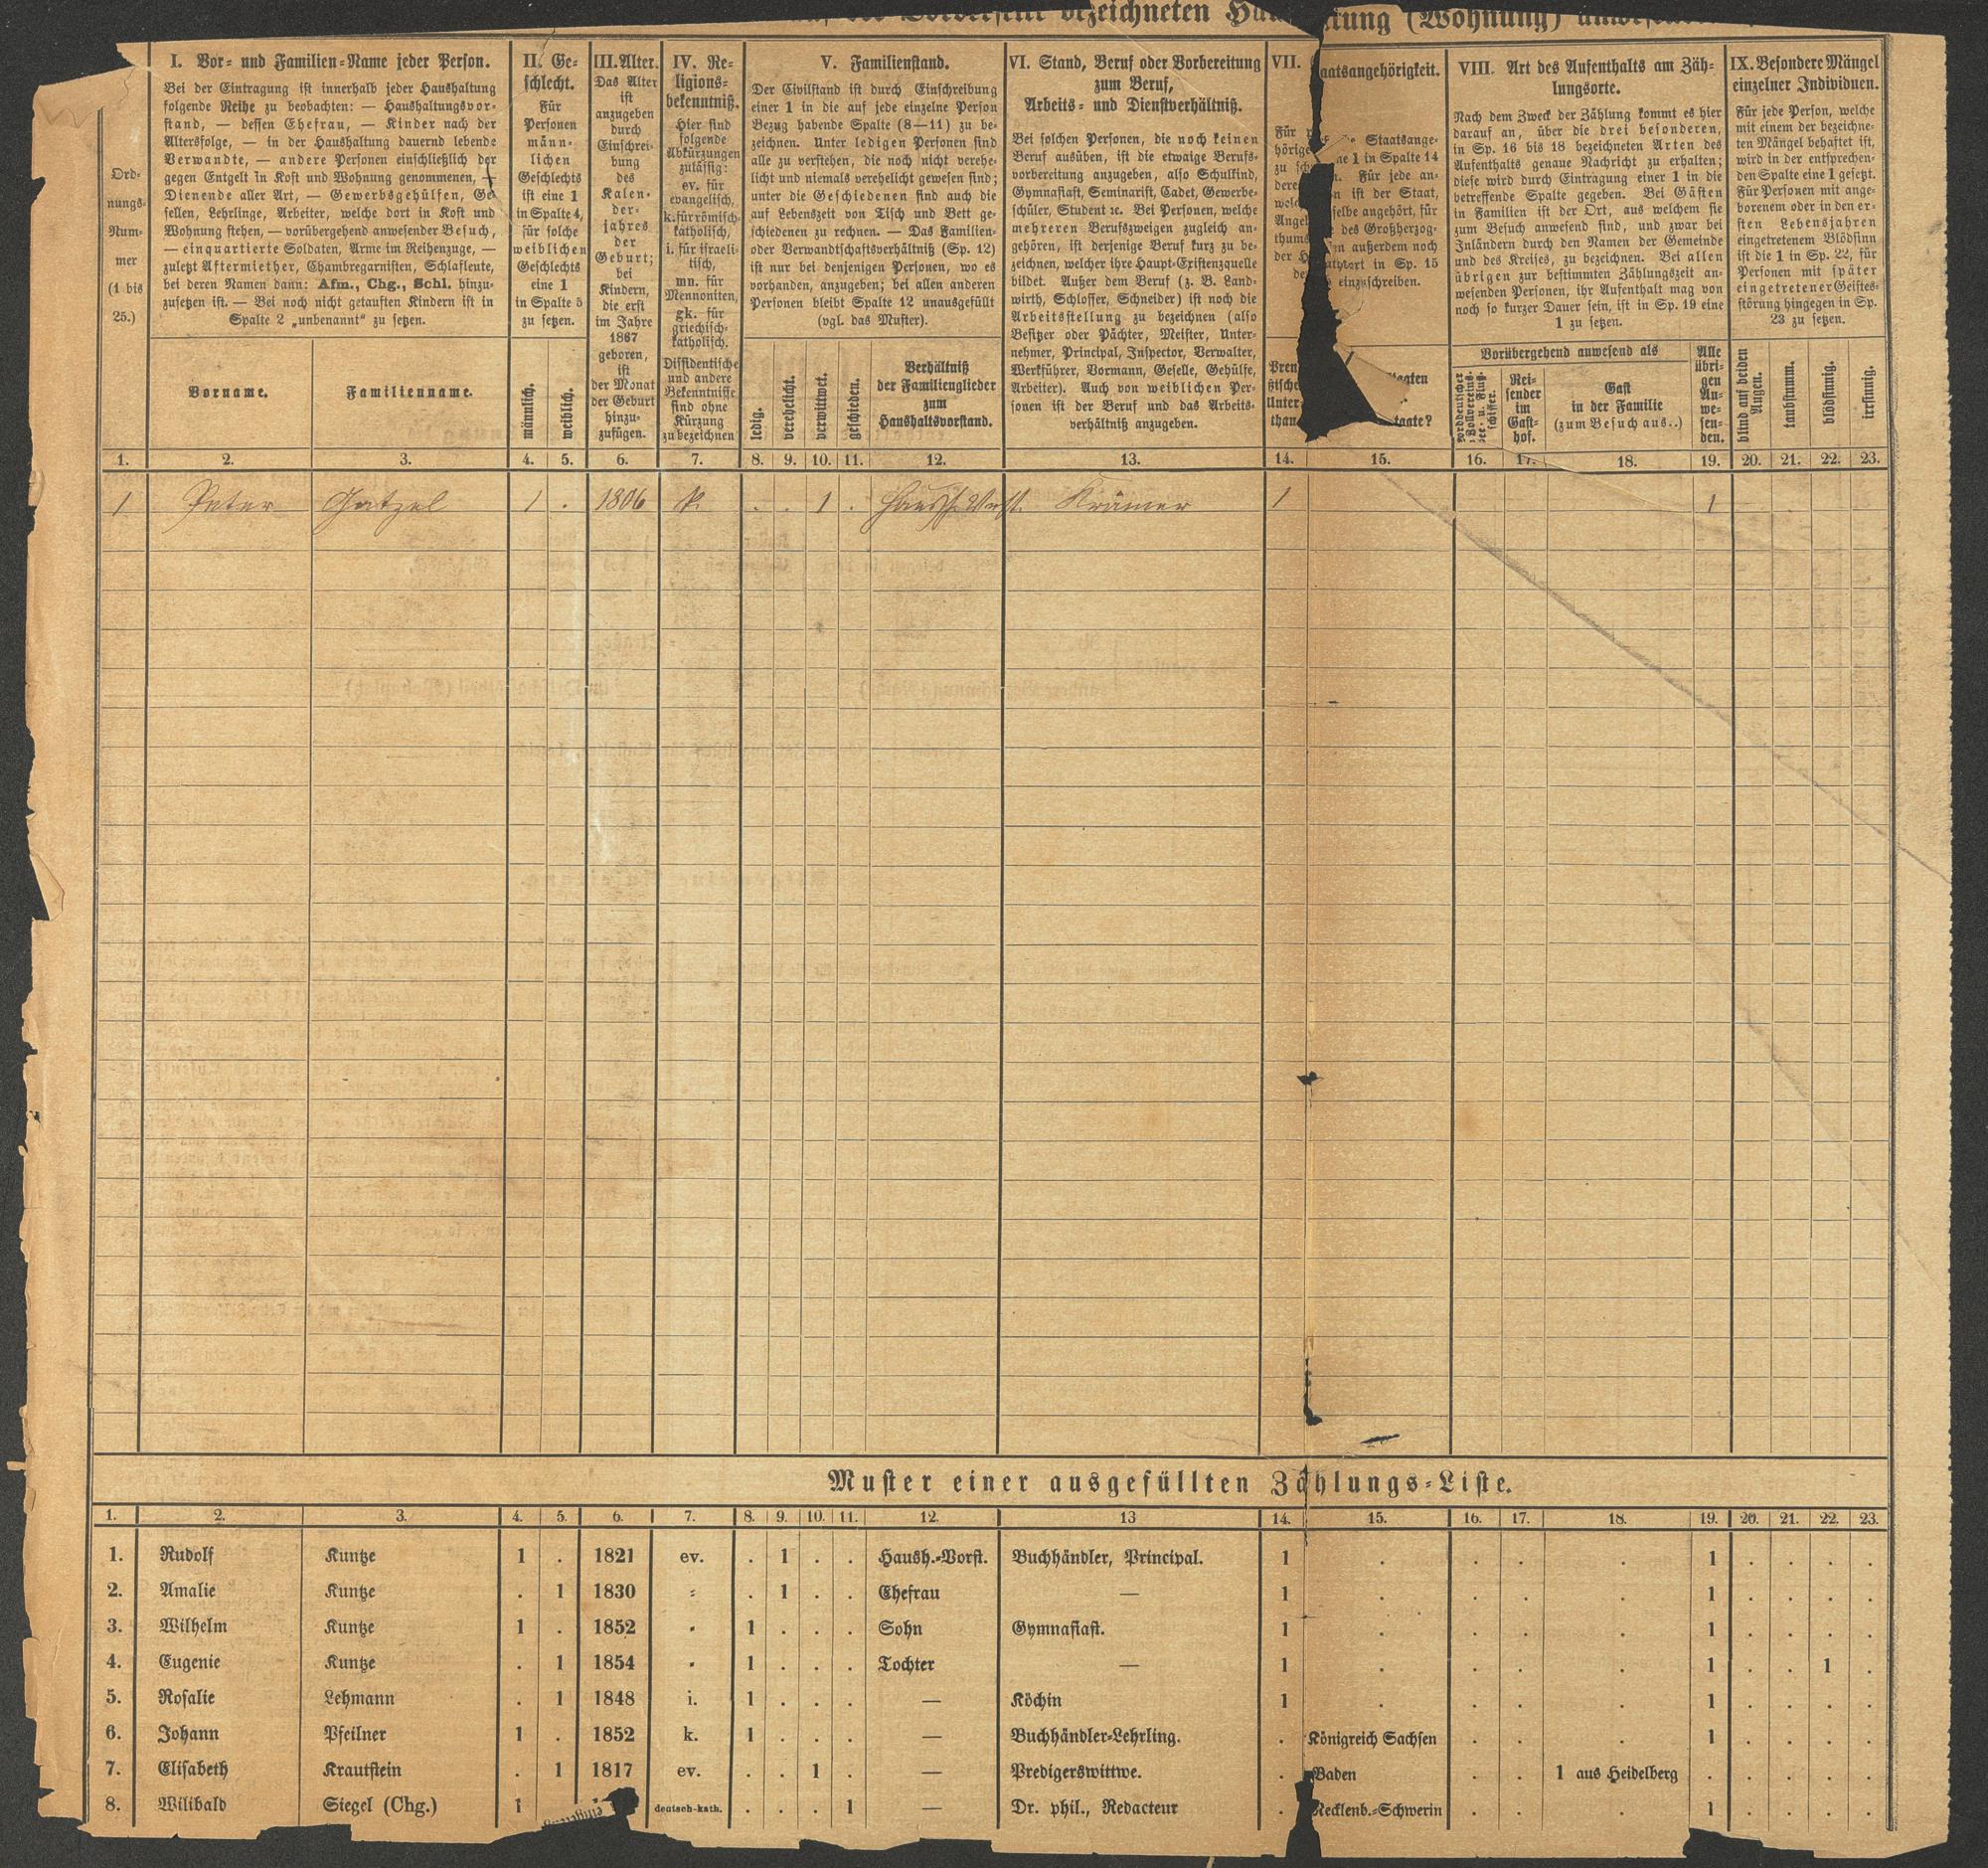 bezeichneten
(Wohnung)
I. Vor- und Familien-Name jeder Person.
Bei der Eintragung ist innerhalb jeder Haushaltung
folgende Reihe zu beobachten: — Haushaltungsvor-
stand, — dessen Ehefrau, — Kinder nach der
Altersfolge, — in der Haushaltung dauernd lebende
Verwandte, — andere Personen einschließlich der
gegen Entgelt in Kost und Wohnung genommenen, —
Dienende aller Art, — Gewerbsgehülfen, Ge
sellen, Lehrlinge, Arbeiter, welche dort in Kost und
Wohnung stehen, — vorübergehend anwesender Besuch,
— einquartierte Soldaten, Arme im Reihenzuge, —
zuletzt Aftermiether, Chambregarnisten, Schlafleute,
bei deren Namen dann: Afm., Chg., Schl. hinzu-
zusetzen ist. — Bei noch nicht getauften Kindern ist in
Spalte 2 „unbenannt“ zu setzen.
Ord-
nungs-
Num-
mer
(1 bis
25.)
Vorname.
Familienname.
II. Ge-
schlecht.
Für
Personen
männ-
lichen
Geschlechts
ist eine 1
in Spalte 4,
für solche
weiblichen
Geschlechts
eine 1
in Spalte 5
zu setzen.
männlich.
weiblich.
III. Alter.
Das Alter
ist
anzugeben
durch
Einschrei-
bung
des
Kalen-
der-
jahres
der
Geburt;
bei
Kindern,
die erst
im Jahre
1867
geboren,
ist
der Monat
der Geburt
hinzu-
zufügen.
IV. Re-
ligions-
bekenntniß.
Hier sind
folgende
Abkürzungen
zulässig:
ev. für
evangelisch,
k. für römisch-
katholisch,
i. für israeli-
tisch,
mn. für
Mennoniten,
gk. für
griechisch-
katholisch.
Dissidentische
und andere
Bekenntnisse
sind ohne
Kürzung
zu bezeichnen
V. Familienstand.
Der Civilstand ist durch Einschreibung
einer 1 in die auf jede einzelne Person
Bezug habende Spalte (8—11) zu be-
zeichnen. Unter ledigen Personen sind
alle zu verstehen, die noch nicht verehe-
licht und niemals verehelicht gewesen sind;
unter die Geschiedenen sind auch die
auf Lebenszeit von Tisch und Bett ge-
schiedenen zu rechnen. — Das Familien-
oder Verwandtschaftsverhältniß (Sp. 12)
ist nur bei denjenigen Personen, wo es
vorhanden, anzugeben; bei allen anderen
Personen bleibt Spalte 12 unausgefüllt
(vgl. das Muster).
ledig.
verehelicht.
verwittwet.
geschieden.
Verhältniß
der Familienglieder
zum
Haushaltsvorstand.
VI. Stand, Beruf oder Vorbereitung
zum Beruf,
Arbeits- und Dienstverhältniß.
Bei solchen Personen, die noch keinen
Beruf ausüben, ist die etwaige Berufs-
vorbereitung anzugeben, also Schulkind,
Gymnasiast, Seminarist, Cadet, Gewerbe-
schüler, Student ꝛc. Bei Personen, welche
mehreren Berufszweigen zugleich an-
gehören, ist derjenige Beruf kurz zu be-
zeichnen, welcher ihre Haupt-Existenzquelle
bildet. Außer dem Beruf (z. B. Land-
wirth, Schlosser, Schneider) ist noch die
Arbeitsstellung zu bezeichnen (also
Besitzer oder Pächter, Meister, Unter-
nehmer, Principal, Inspector, Verwalter,
Werkführer, Vormann, Geselle, Gehülfe,
Arbeiter). Auch von weiblichen Per-
sonen ist der Beruf und das Arbeits-
verhältniß anzugeben.
VII. aatsangehörigkeit.
Für Staatsange-
hörige 1 in Spalte 14
zu Für jede an-
dere ist der Staat,
selbe angehört, für
des Großherzog-
thums außerdem noch
der in Sp. 15
einzuschreiben.
VIII. Art des Aufenthalts am Zäh-
lungsorte.
Nach dem Zweck der Zählung kommt es hier
darauf an, über die drei besonderen,
in Sp. 16 bis 18 bezeichneten Arten des
Aufenthalts genaue Nachricht zu erhalten;
diese wird durch Eintragung einer 1 in die
betreffende Spalte gegeben. Bei Gästen
in Familien ist der Ort, aus welchem sie
zum Besuch anwesend sind, und zwar bei
Inländern durch den Namen der Gemeinde
und des Kreises, zu bezeichnen. Bei allen
übrigen zur bestimmten Zählungszeit an-
wesenden Personen, ihr Aufenthalt mag von
noch so kurzer Dauer sein, ist in Sp. 19 eine
1 zu setzen.
Vorübergehend anwesend als
Rei-
sender
im
Gast-
hof.
Gast
in der Familie
(zum Besuch aus..)
Alle
übri-
gen
An-
we-
sen-
den.
IX. Besondere Mängel
einzelner Individuen.
Für jede Person, welche
mit einem der bezeichne-
ten Mängel behaftet ist,
wird in der entsprechen-
den Spalte eine 1 gesetzt.
Für Personen mit ange-
borenem oder in den er-
sten Lebensjahren
eingetretenem Blödsinn
ist die 1 in Sp. 22, für
Personen mit später
eingetretener Geistes-
störung hingegen in Sp.
23 zu setzen.
blind auf beiden
Augen.
taubstumm.
blödsinnig.
irrsinnig.
1. 2. 3. 4. 5. 6. 7. 8. 9. 10. 11. 12. 13. 14. 15. 16. 17. 18. 19. 20. 21. 22. 23.
1 Peter Gatzel 1 . 1806 k. . . 1 . Haush. Vorst. Krämer 1 1
Muster einer ausgefüllten Zählungs-Liste.
1. 2. 3. 4. 5. 6. 7. 8. 9. 10. 11. 12. 13 14. 15. 16. 17. 18. 19. 20. 21. 22. 23.
1. Rudolf Kuntze 1 . 1821 ev. . 1 . . Haush.-Vorst. Buchhändler, Principal. 1 . . . . 1 . . . .
2. Amalie Kuntze . 1 1830 = . 1 . . Ehefrau — 1 . . . . 1 . . . .
3. Wilhelm Kuntze 1 . 1852 " 1 . . . Sohn Gymnasiast. 1 . . . . 1 . . . .
4. Eugenie Kuntze . 1 1854 " 1 . . . Tochter — 1 . . . . 1 . . 1 .
5. Rosalie Lehmann . 1 1848 i. 1 . . . — Köchin 1 . . . . 1 . . . .
6. Johann Pfeilner 1 . 1852 k. 1 . . . — Buchhändler-Lehrling. . Königreich Sachsen . . . 1 . . . .
7. Elisabeth Krautstein . 1 1817 ev. . . 1 . — Predigerswittwe. . Baden . . 1 aus Heidelberg . . . . .
8. Wilibald Siegel (Chg.) 1 deutsch-kath. . . . 1 — Dr. phil., Redacteur . Mecklenb.-Schwerin . . . 1 . . . .